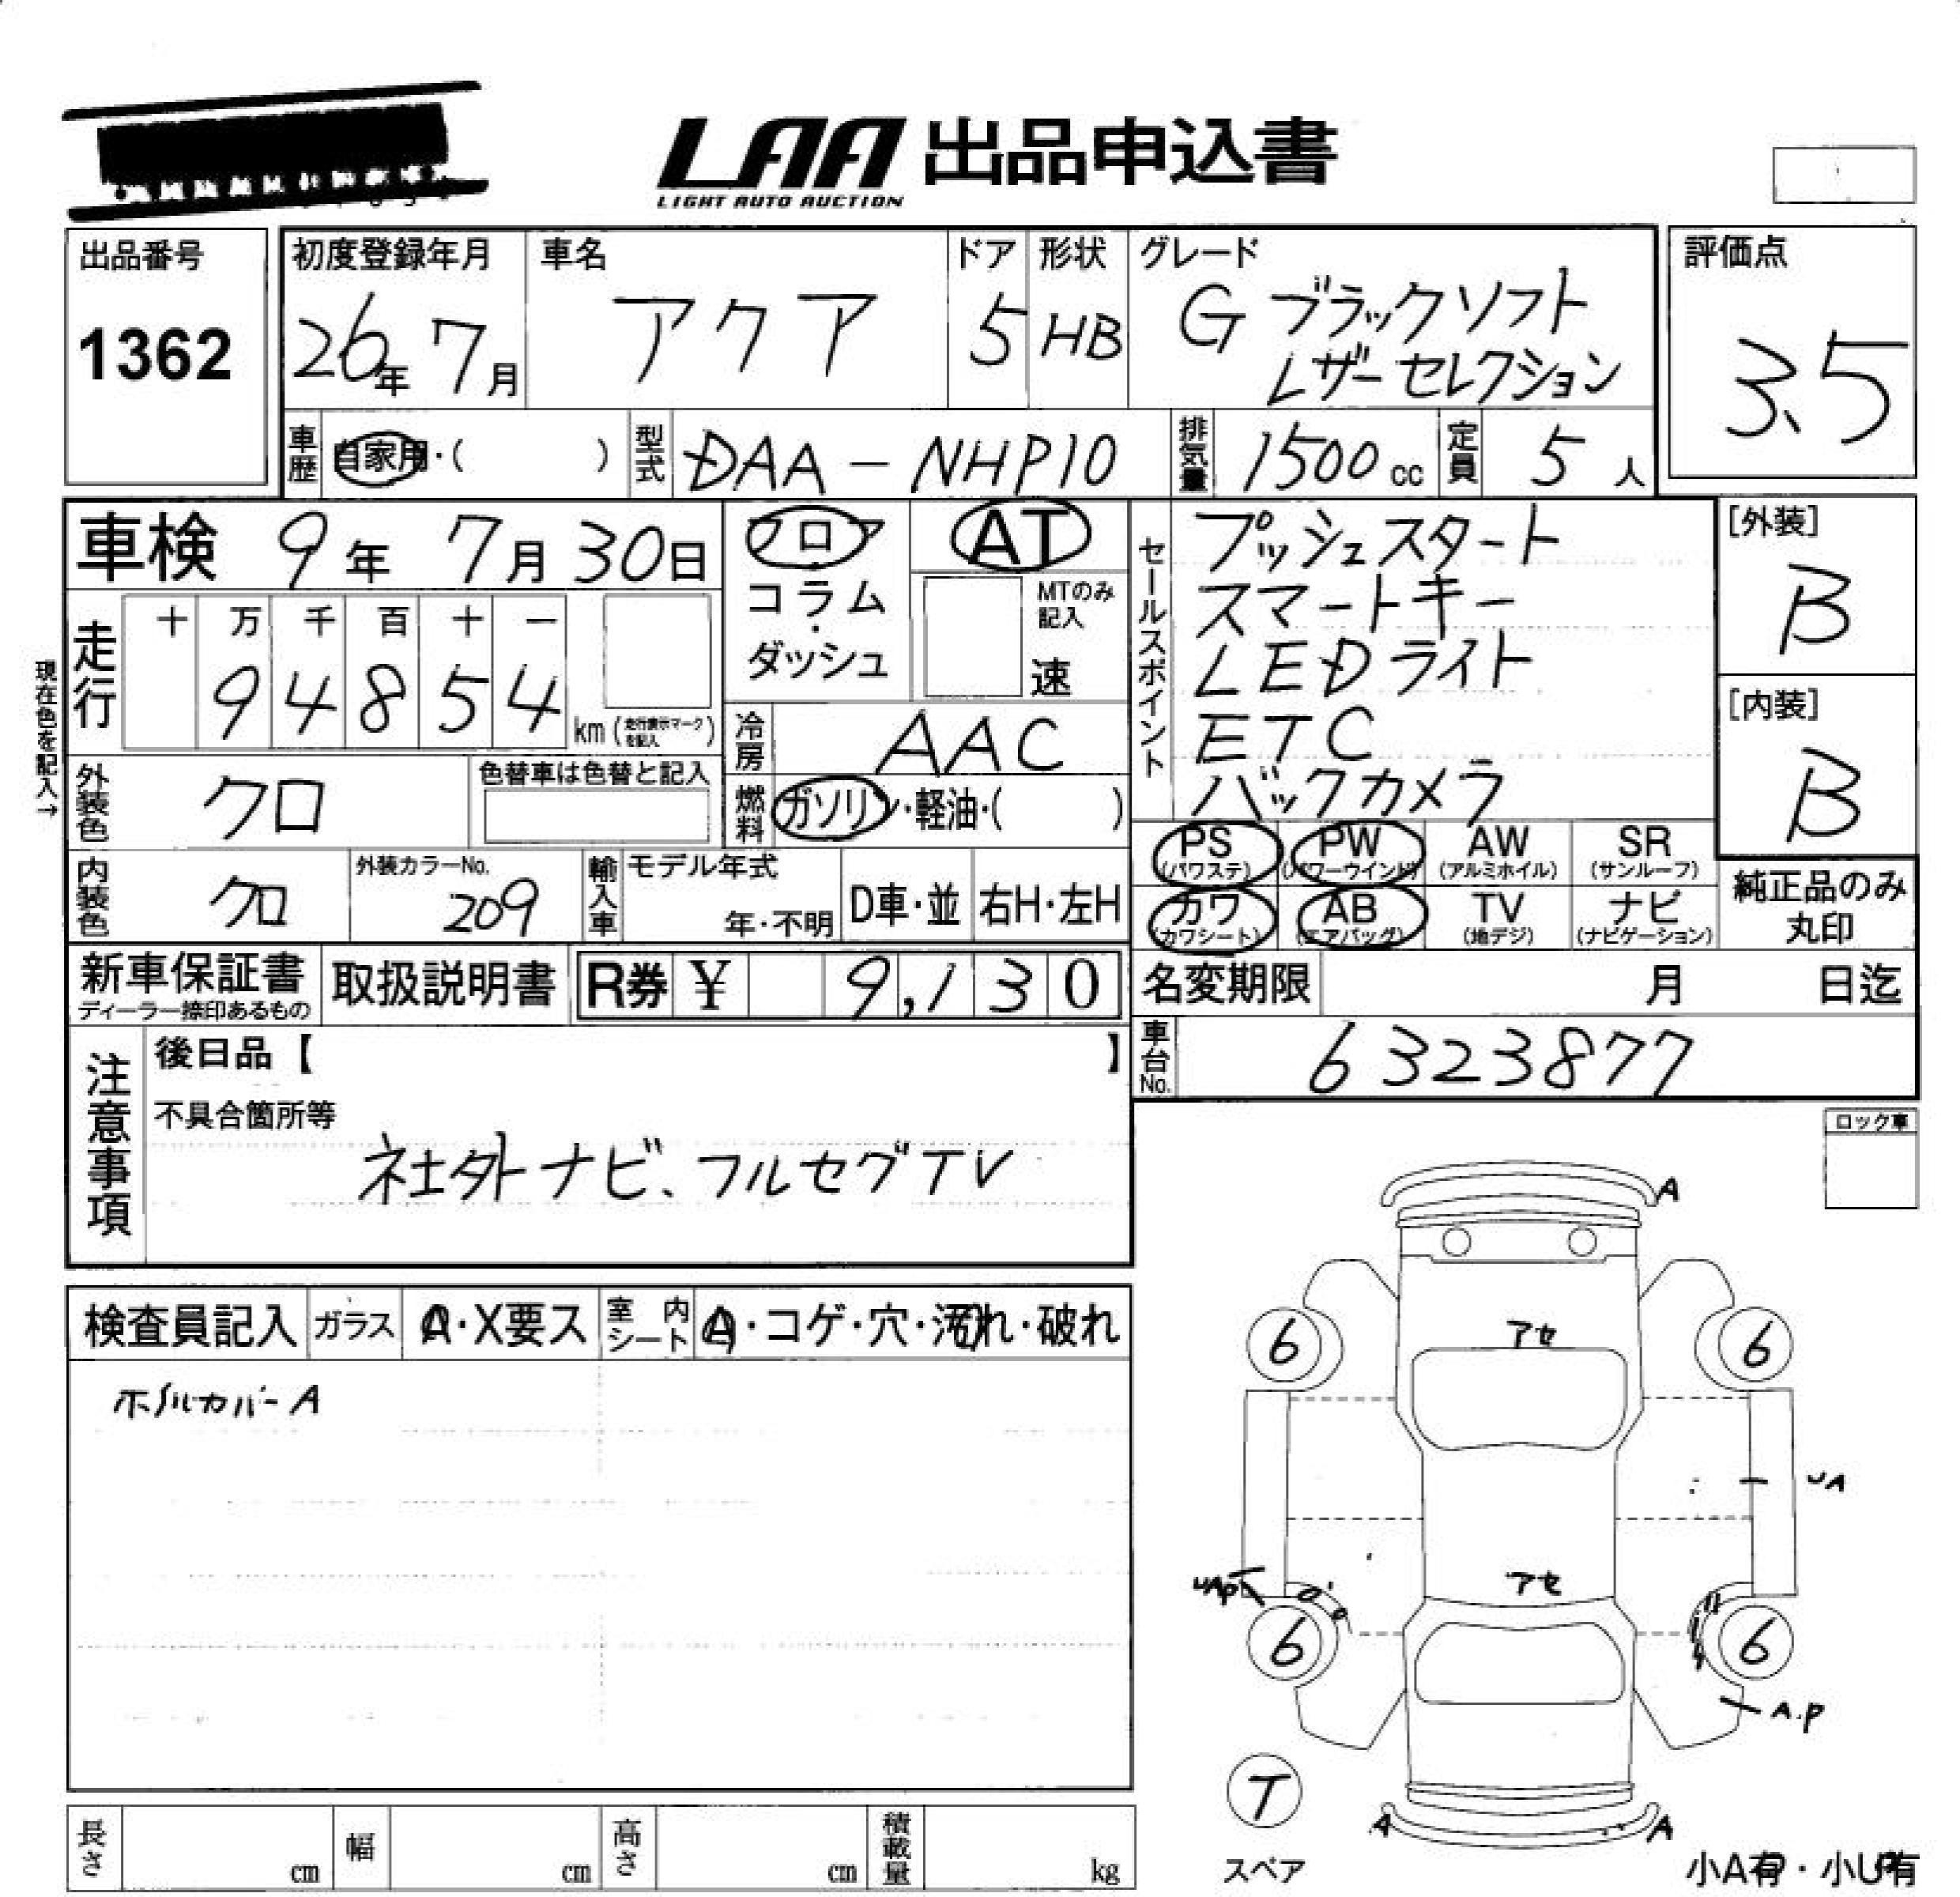 LAA 出品申込書
LIGHT AUTO AUCTION
出品番号
1362
初度登録年月
26年 7月
車名
アクア
ドア
5
形状
HB
グレード
G ブラックソフト
レザーセレクション
評価点
3.5
車歴 自家用・( )
型式 DAA-NHP10
排気量 1500cc
定員 5人
車検 9年 7月 30日
フロア
コラム
・
ダッシュ
AT
MTのみ
記入
速
セールスポイント
プッシュスタート
スマートキー
LEDライト
ETC
バックカメラ
[外装]
B
[内装]
B
現在色を記入→
走行
十 万 千 百 十 一
9 4 8 5 4
km (走行表示マークを記入)
冷房 AAC
燃料 ガソリン・軽油・( )
外装色 クロ
色替車は色替と記入
内装色 クロ
外装カラーNo.
209
輸入車
モデル年式
年・不明
D車・並
右H・左H
PS (パワステ)
PW (パワーウインド)
AW (アルミホイル)
SR (サンルーフ)
カワ (カワシート)
AB (エアバッグ)
TV (地デジ)
ナビ (ナビゲーション)
純正品のみ
丸印
新車保証書
ディーラー捺印あるもの
取扱説明書
R券 ¥ 9,130
名変期限 月 日迄
車台No. 6323877
注意事項
後日品【 】
不具合箇所等
社外ナビ、フルセグTV
ロック車
検査員記入
ガラス A・X要ス
室内シート A・コゲ・穴・汚れ・破れ
ホイルカバーA
A
6
6
アセ
UA
アセ
UAP
6
6
A.P
T
スペア
A
A
小A有・小U有
長さ cm
幅 cm
高さ cm
積載量 kg